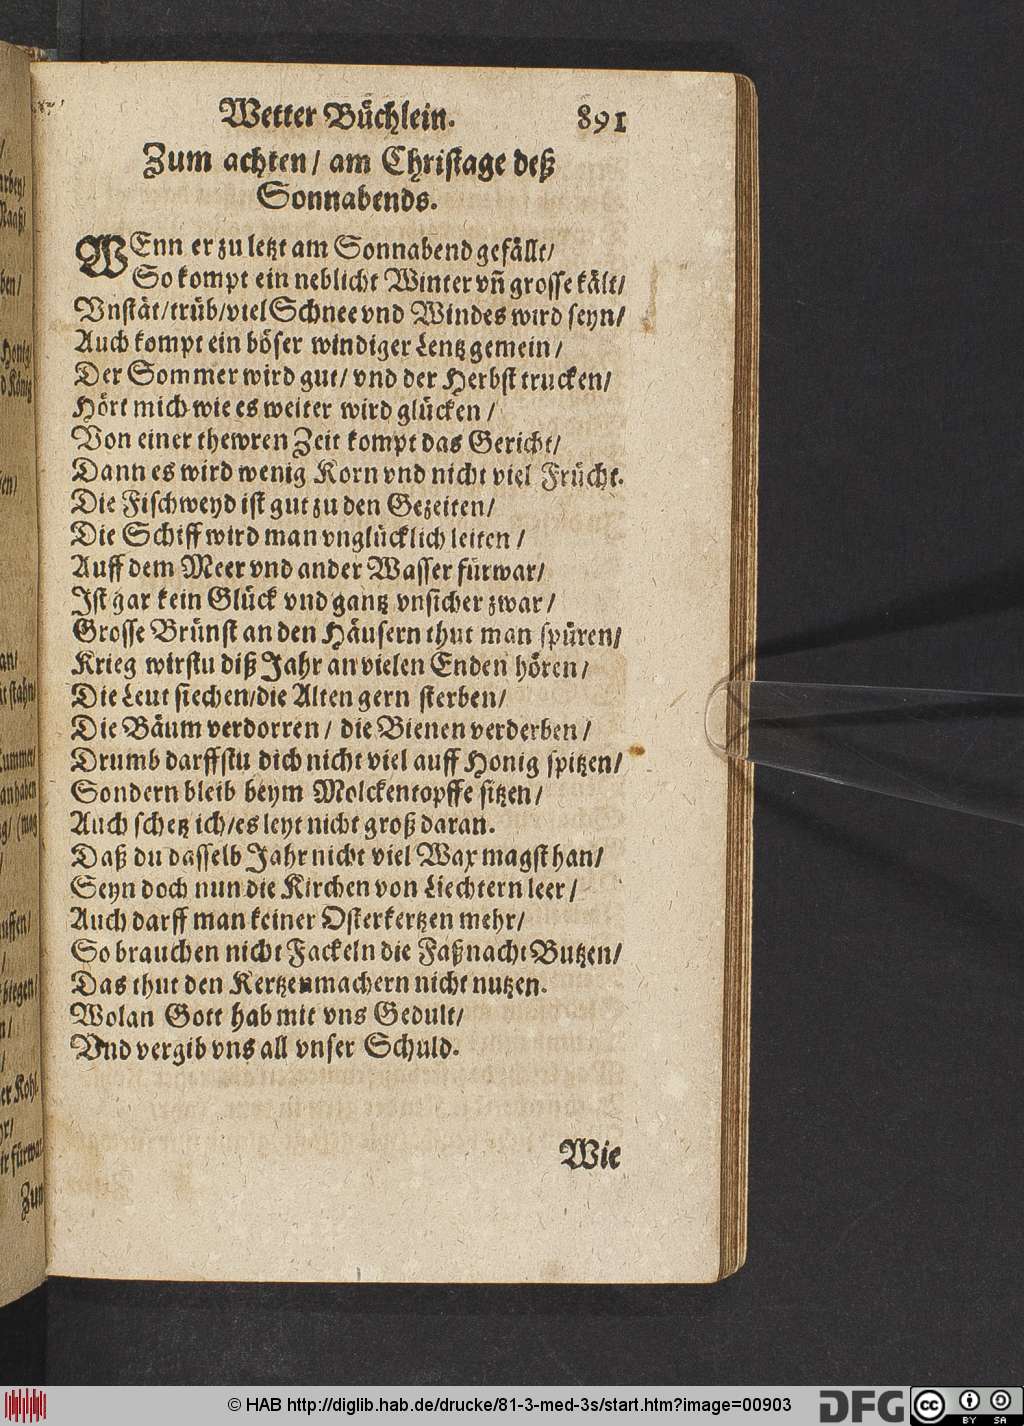 Wetter Bůchlein. 891
Zum achten / am Christage deß
Sonnabends.
WEnn er zu letzt am Sonnabend gefällt /
So kompt ein neblicht Winter vñ grosse kält /
Vnstät / trüb / viel Schnee vnd Windes wird seyn /
Auch kompt ein böser windiger Lentz gemein /
Der Sommer wird gut / vnd der Herbst trucken /
Hört mich wie es weiter wird glücken /
Von einer thewren Zeit kompt das Gericht /
Dann es wird wenig Korn vnd nicht viel Frücht.
Die Fischweyd ist gut zu den Gezeiten /
Die Schiff wird man vnglücklich leiten /
Auff dem Meer vnd ander Wasser fürwar /
Ist gar kein Glück vnd gantz vnsicher zwar /
Grosse Brünst an den Häusern thut man spüren /
Krieg wirstu diß Jahr an vielen Enden hören /
Die Leut siechen / die Alten gern sterben /
Die Bäum verdorren / die Bienen verderben /
Drumb darffstu dich nicht viel auff Honig spitzen /
Sondern bleib beym Molckentopffe sitzen /
Auch schetz ich / es leyt nicht groß daran.
Daß du dasselb Jahr nicht viel Wax magst han /
Seyn doch nun die Kirchen von Liechtern leer /
Auch darff man keiner Osterkertzen mehr /
So brauchen nicht Fackeln die Faßnacht Butzen /
Das thut den Kertzenmachern nicht nutzen.
Wolan Gott hab mit vns Gedult /
Vnd vergib vns all vnser Schuld.
Wie
© HAB http://diglib.hab.de/drucke/81-3-med-3s/start.htm?image=00903
DFG
cc BY SA